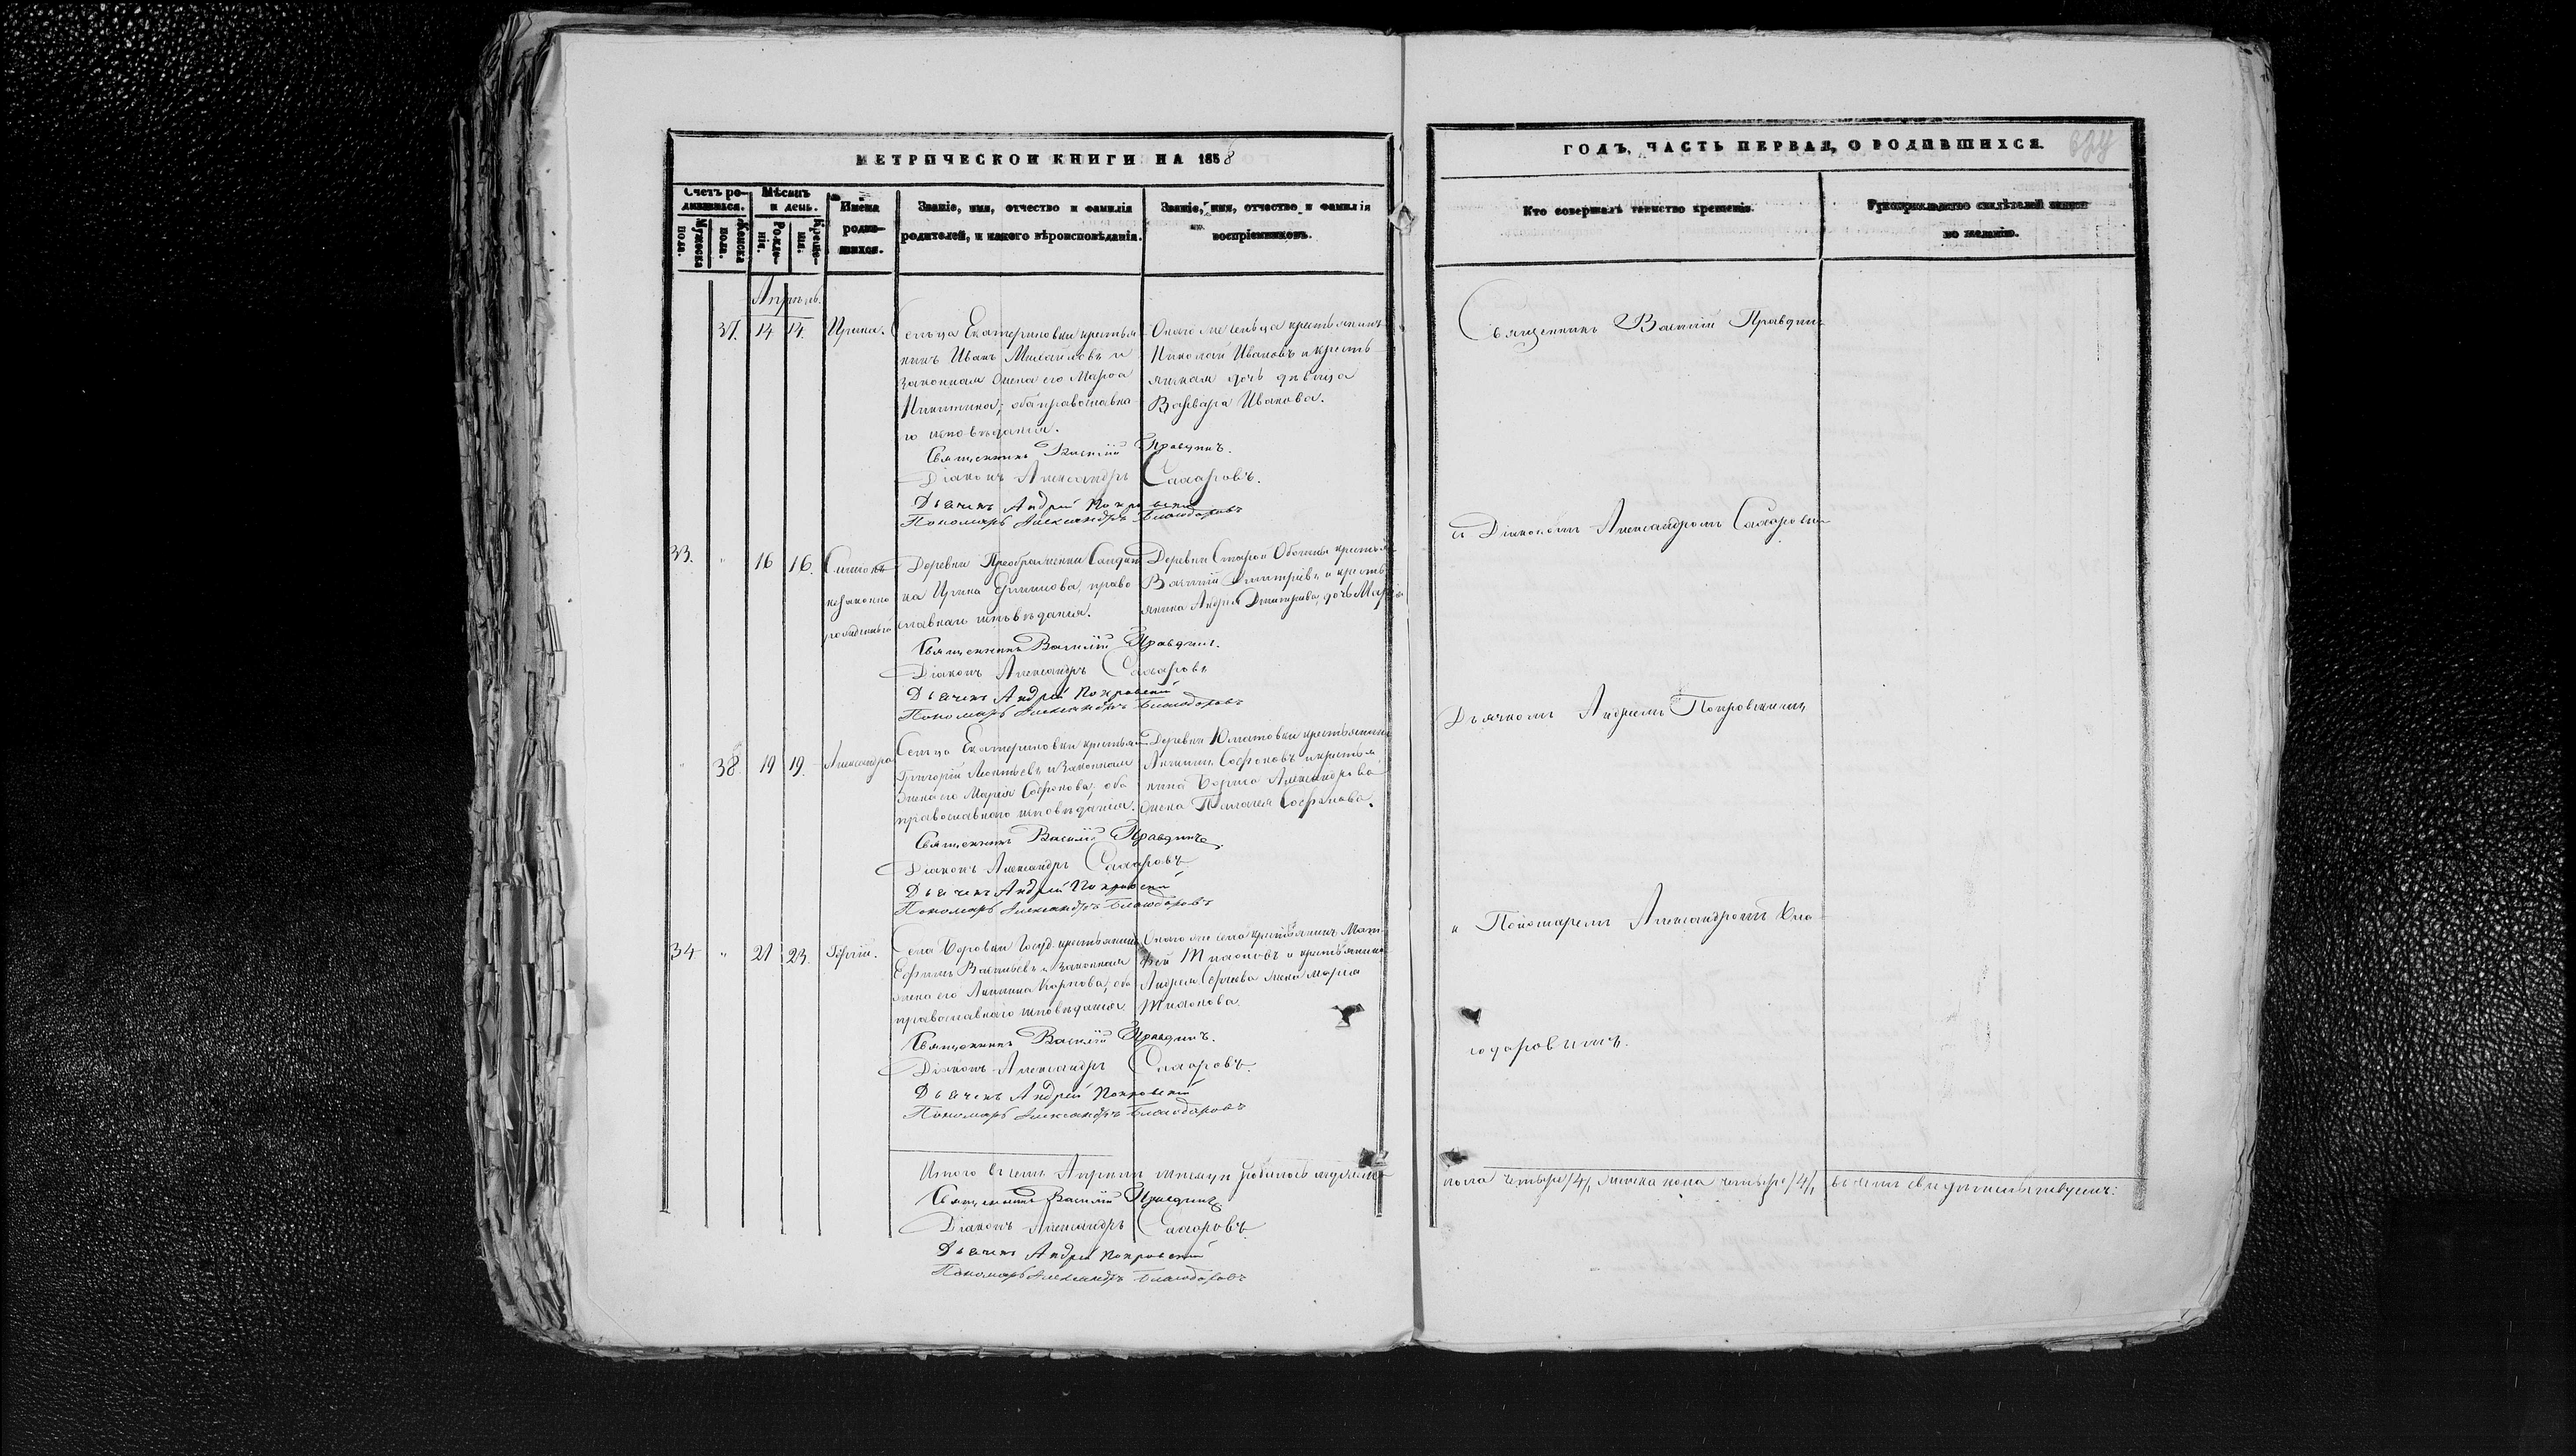 МЕТРИЧЕСКОЙ КНИГИ НА 1858
Счетъ ро-
дившихся.
Мужеска
пола.
Женска
пола.
Мѣсяцъ
и день.
Рожде-
нія.
Креще-
нія.
Имена
родив-
шихся.
Званіе, имя, отчество и фамилія
родителей, и какого вѣроисповѣданія.
Званіе, имя, отчество и фамилія
воспріемниковъ.
Апрѣль.
37. 14 14. Ирина.
Сельца Екатериновки крестья
нинъ Иванъ Михайловъ и
законная жена его Марѳа
Никитина; оба православна
го исповѣданія.
Онаго же сельца крестьянинъ
Николай Ивановъ и кресть
янская дочь дѣвица
Варвара Иванова.
Священникъ Василій Правдинъ.
Діаконъ Александръ Сахаровъ.
Дьячекъ Андрей Покровскій
Пономарь Александръ Благодаровъ
33. " 16 16. Симеонъ
незаконно
рожденный
Деревни Преображенки Солдат
ка Ирина Ефимова, право
славнаго исповѣданія.
Деревни Старой крестья
Василій Димитріевъ и кресть
янина Андрея Димитріева дочь Марія
Священникъ Василій Правдинъ.
Діаконъ Александръ Сахаровъ
Дьячекъ Андрей Покровскій
Пономарь Александръ Благодаровъ
" 38. 19 19. Александра
Сельца Екатериновки крестьян
Григорій Леонтьевъ и законная
жена его Марія Софронова, оба
православнаго исповѣданія.
Деревни Юматовки крестьянинъ
Софроновъ и крестья
нина Бориса Александрова
жена Пелагея Софронова.
Священникъ Василій Правдинъ
Діаконъ Александръ Сахаровъ
Дьячекъ Андрей Покровскій
Пономарь Александръ Благодаровъ
34 " 21 23. Сергій.
Села Боровки Госуд. крестьянинъ
Ефимъ Васильевъ и законная
жена его Акилина Карпова, оба
православнаго исповѣданія
Онаго же села крестьянинъ Мат
ѳей Тихоновъ и крестьянина
Андрея Сергѣева жена Марія
Тихонова
Священникъ Василій Правдинъ.
Діаконъ Александръ Сахаровъ.
Дьячекъ Андрей Покровскій
Пономарь Александръ Благодаровъ
Итого въ семъ Апрѣлѣ мѣсяцѣ родилось мужеска
Священникъ Василій Правдинъ
Діаконъ Александръ Сахаровъ
Дьячекъ Андрей Покровскій
Пономарь Александръ Благодаровъ
ГОДЪ, ЧАСТЬ ПЕРВАЯ, О РОДИВШИХСЯ.
Кто совершалъ таинство крещенія.
Рукоприкладство свидѣтелей записи
по желанію.
Священникъ Василій Правдинъ
съ Діакономъ Александромъ Сахаровымъ
Дьячкомъ Андреемъ Покровскимъ
и Пономаремъ Александромъ Бла
годаровымъ.
пола четыре /4/, женска пола четыре /4/, въ чемъ свидѣтельствуемъ: